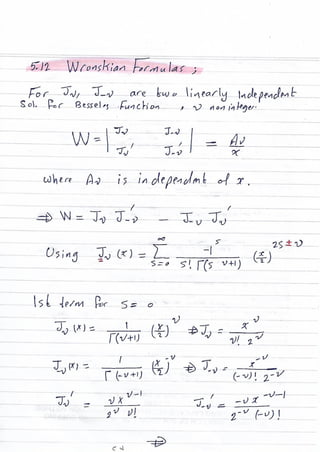 5.12 Wronskian Formulas ;
For Jν, J-ν are two linearly Independent
Sol. For Bessel's Function , ν non integer.
W = | Jν J-ν | = Aν
| Jν' J-ν' | x
where Aν is independent of x.
⇒ W = Jν J-ν' - J-ν Jν'
Using Jν (x) = ∞ Σ s=0 -1^s / s! Γ(s ν+1) (x/2)^2s±ν
1st term for s = 0
Jν (x) = 1 / Γ(ν+1) (x/2)^ν ⇒ Jν = x^ν / ν! 2^ν
J-ν (x) = 1 / Γ(-ν+1) (x/2)^-ν ⇒ J-ν = x^-ν / (-ν)! 2^-ν
Jν' = ν x^ν-1 / 2^ν ν! J-ν' = -ν x^-ν-1 / 2^-ν (-ν)!